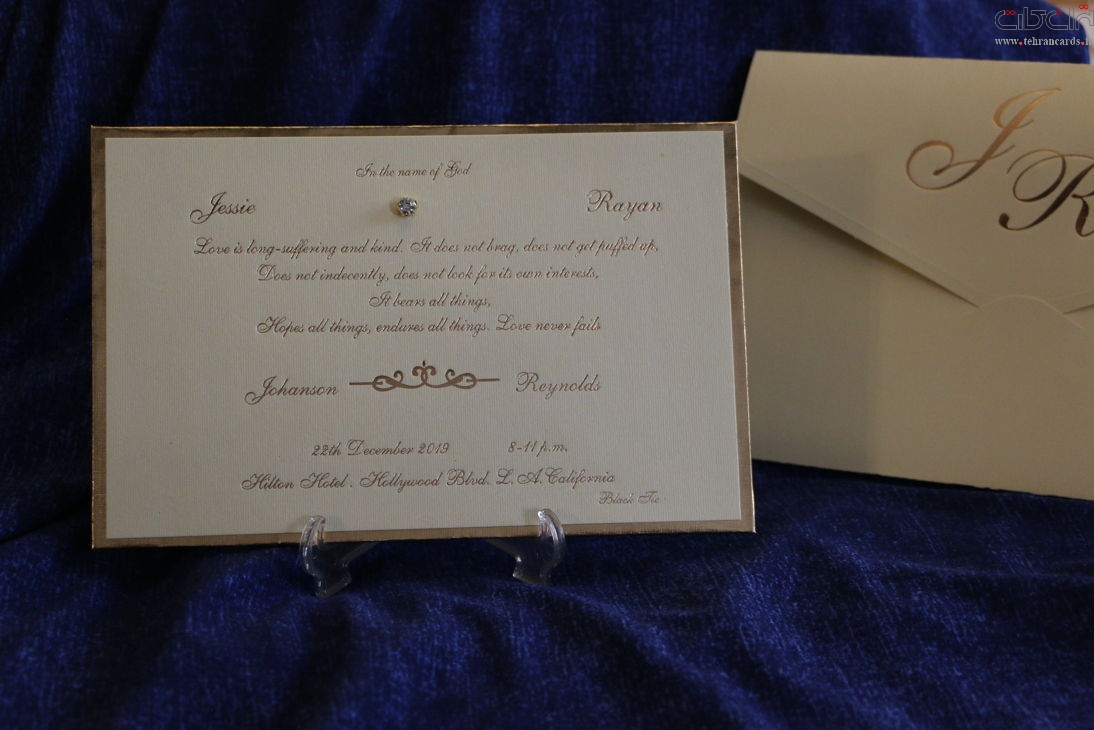 تهران کارت
www.tehrancards.i
J R
In the name of God
Jessie Rayan
Love is long-suffering and kind. It does not brag, does not get puffed up,
Does not indecently, does not look for its own interests,
It bears all things,
Hopes all things, endures all things. Love never fails
Johanson Reynolds
22th December 2019 8-11 p.m.
Hilton Hotel . Hollywood Blvd. L. A. California
Black Tie